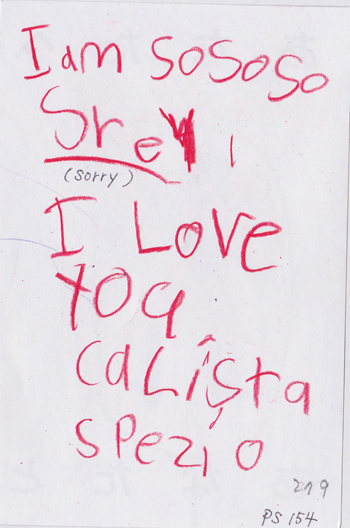 I am SoSoSo
Srey
(sorry)
I Love
YOU
CaLista
SPeziO
219
PS 154